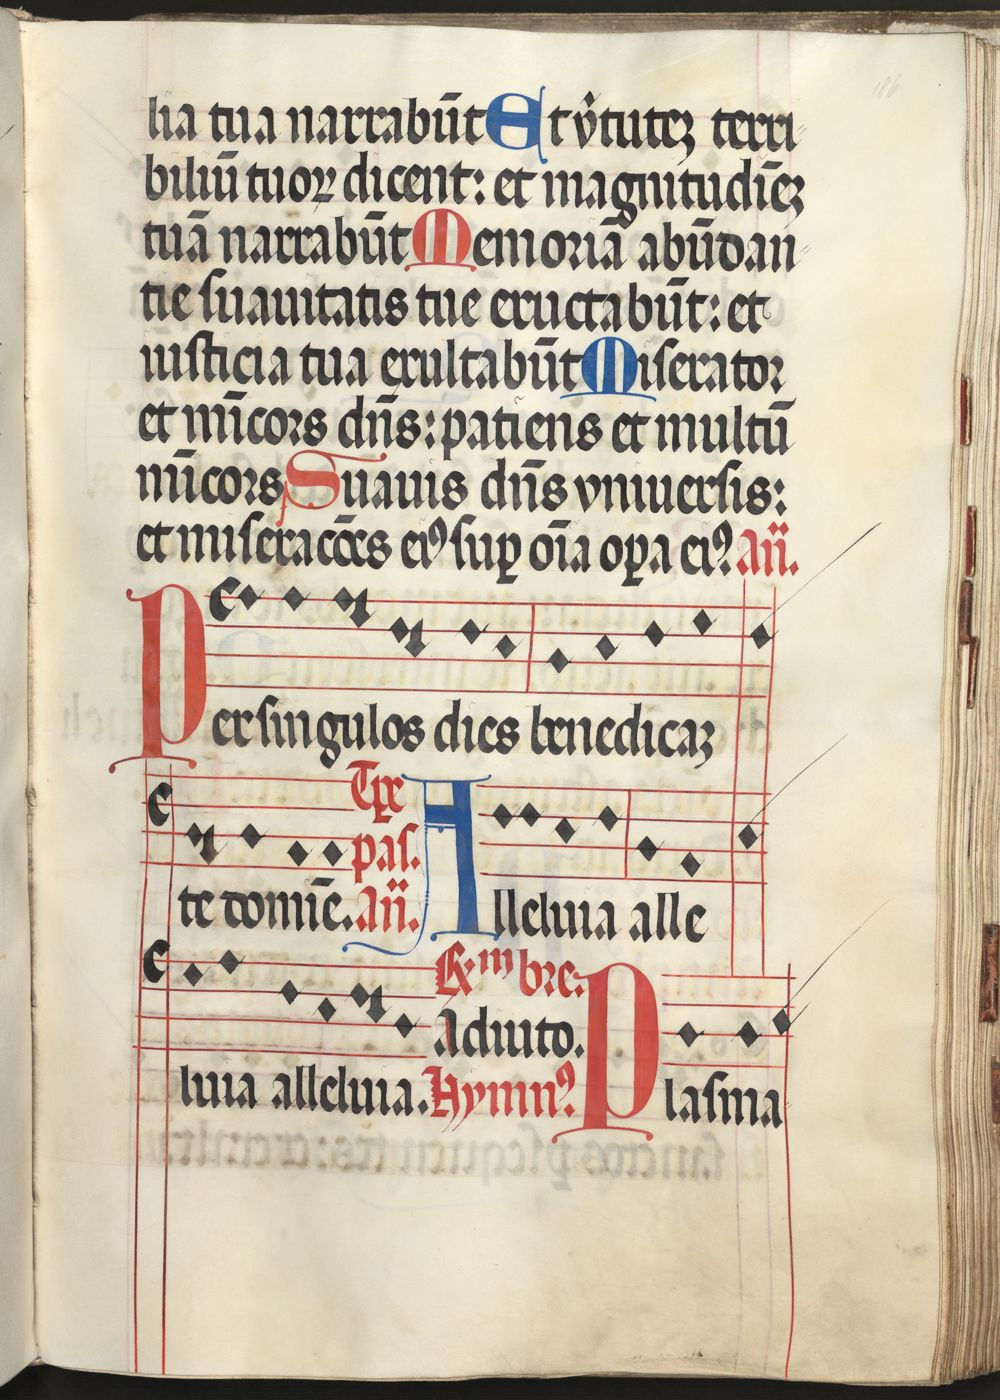 186
lia tua narrabūt Et v̾tuteꝫ terri
biliū tuoꝝ dicent: et magnitudīeꝫ
tuā narrabūt Memoriā abūdan
tie suauitatis tue eructabūt: et
iusticia tua exultabūt Miserator
et mīcors dn̄s: patiens et multū
mīcors Suauis dn̄s vniuersis:
et miseracōes eiꝰ suꝑ oīa oꝑa eiꝰ. añ.
Per singulos dies benedicaꝫ
te domīe. Tꝑe pas. añ. Alleluia alle
luia alleluia. bre. Adiuto. Hymnꝰ. Plasma